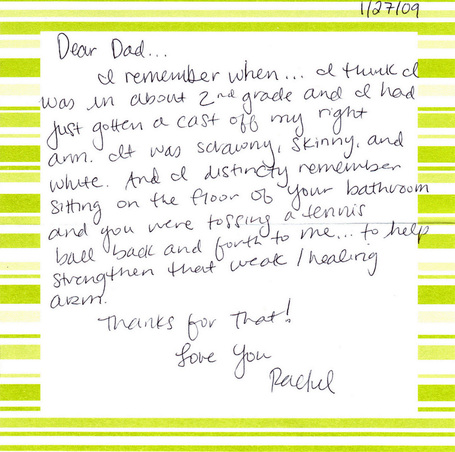 1/27/09
Dear Dad...
I remember when... I think I
was in about 2nd grade and I had
just gotten a cast off my right
arm. It was scrawny, skinny, and
white. And I distinctly remember
sitting on the floor of your bathroom
and you were tossing a tennis
ball back and forth to me... to help
strengthen that weak/healing
arm.
Thanks for that!
Love You
Rachel